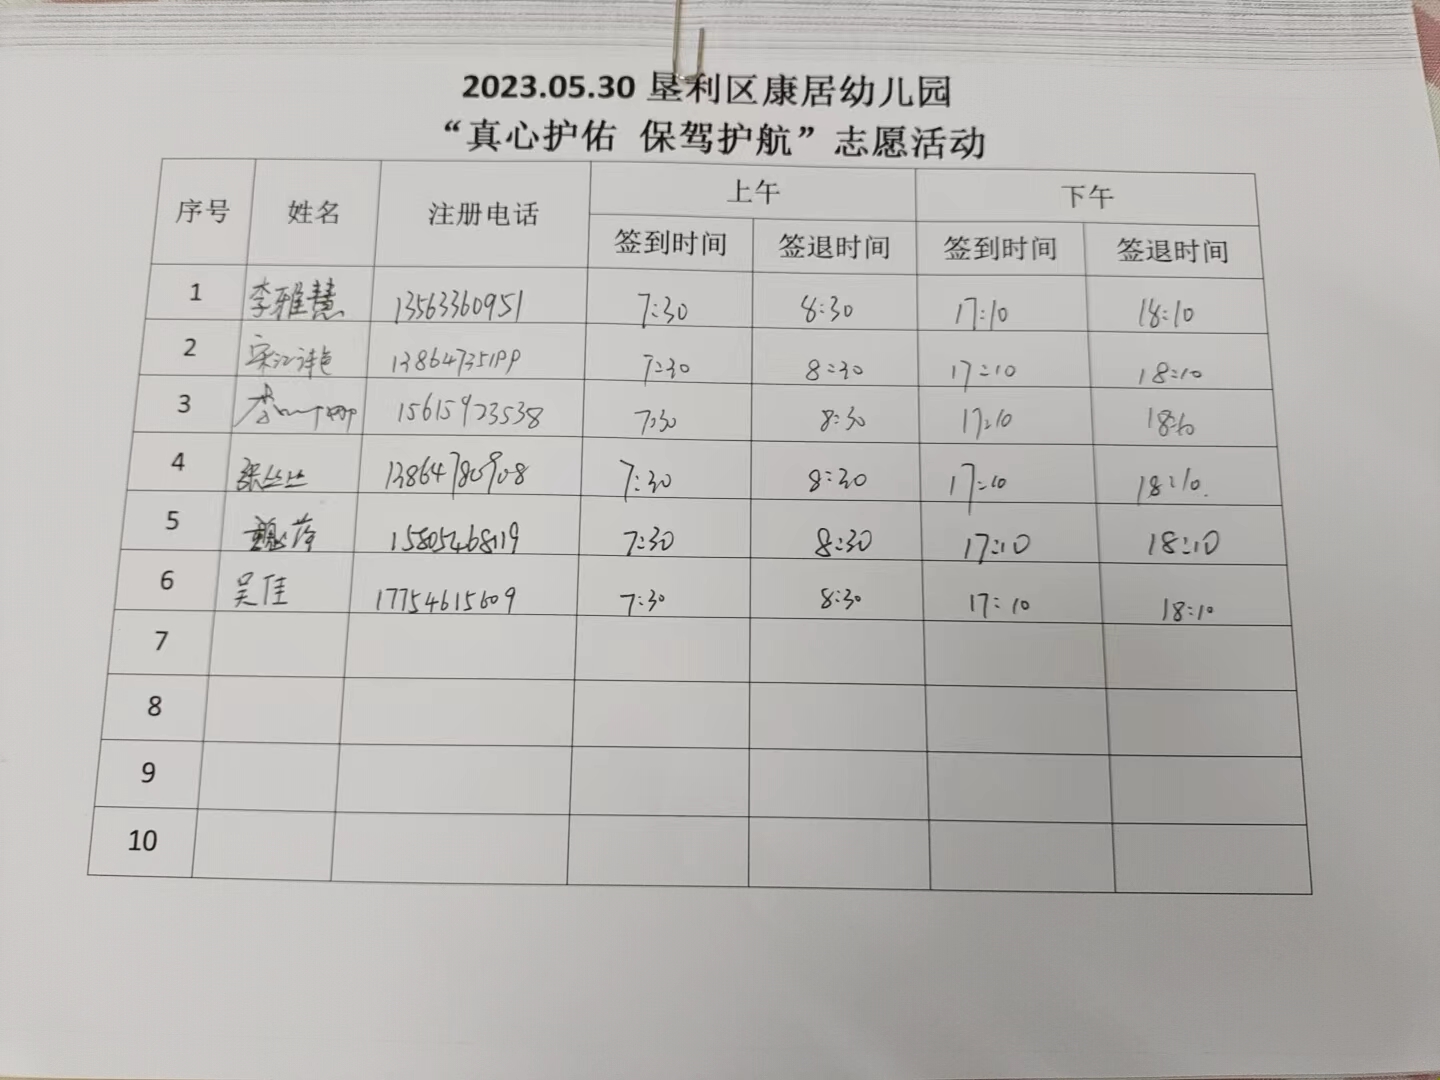 2023.05.30 垦利区康居幼儿园
“真心护佑 保驾护航”志愿活动
序号 姓名 注册电话 上午 下午
签到时间 签退时间 签到时间 签退时间
1 李雅慧 13563360951 7:30 8:30 17:10 18:10
2 13864735199 7:30 8:30 17:10 18:10
3 15615923538 7:30 8:30 17:10 18:10
4 张丝丝 13864780908 7:30 8:30 17:10 18:10.
5 15805468119 7:30 8:30 17:10 18:10
6 吴佳 17754615609 7:30 8:30 17:10 18:10
7
8
9
10